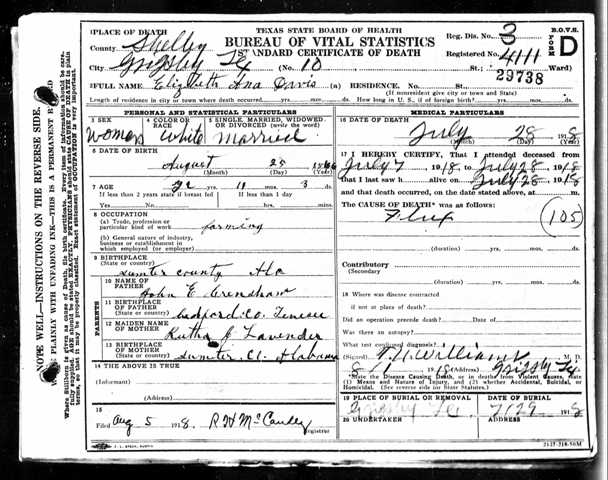 TEXAS STATE BOARD OF HEALTH
BUREAU OF VITAL STATISTICS
STANDARD CERTIFICATE OF DEATH
Reg. Dis. No. 3
Registered No. 4111
B.O.V.S.
FORM
D
1 PLACE OF DEATH
County Shelby
City Grigsby Tex No. 10 St.; Ward)
29738
2 FULL NAME Elizabeth Ana Davis (a) RESIDENCE. No. St.
(If nonresident give city or town and State)
Length of residence in city or town where death occurred. yrs. mos. ds. How long in U. S., if of foreign birth? yrs. mos. ds.
PERSONAL AND STATISTICAL PARTICULARS
3 SEX
4 COLOR OR RACE
5 SINGLE, MARRIED, WIDOWED, OR DIVORCED (write the word)
Woman White Married
6 DATE OF BIRTH
August 25
(Month) (Day) (Year)
7 AGE 11 mos. 3 ds.
If less than 2 years state if breast fed If less than 1 day
Yes No hrs. min.
8 OCCUPATION
(a) Trade, profession or particular kind of work farming
(b) General nature of industry, business or establishment in which employed (or employer)
9 BIRTHPLACE
(State or country) Sumter county Ala
PARENTS
10 NAME OF FATHER John E Crenshaw
11 BIRTHPLACE OF FATHER
(State or country) Bedford Co. Tenesee
12 MAIDEN NAME OF MOTHER Lavender
13 BIRTHPLACE OF MOTHER
(State or country) Sumter Co. Alabama
14 THE ABOVE IS TRUE
(Informant)
(Address)
15
Filed Aug 5 1918. R H McCauley
registrar
MEDICAL PARTICULARS
16 DATE OF DEATH
July 28 1918
(Month) (Day) (Year)
17 I HEREBY CERTIFY, That I attended deceased from
July 7, 1918, to July 28, 1918
that I last saw h alive on July 28, 1918
and that death occurred, on the date stated above, at m.
The CAUSE OF DEATH* was as follows:
Flux
105
(duration) yrs. mos. ds.
Contributory
(Secondary
(duration) yrs. mos. ds.
18 Where was disease contracted
if not at place of death?
Did an operation precede death? Date of
Was there an autopsy?
What test confirmed diagnosis?
(Signed) Williams, M. D.
8/1, 1918 (Address) Grigsby Tex
*State the Disease Causing Death, or in deaths from Violent Causes, state (1) Means and Nature of Injury, and (2) whether Accidental, Suicidal, or Homicidal. (See reverse side for State Statistics.)
19 PLACE OF BURIAL OR REMOVAL
DATE OF BURIAL
Grigsby Tex 7/29 1918
20 UNDERTAKER
NOTE WELL—INSTRUCTIONS ON THE REVERSE SIDE.
WRITE PLAINLY WITH UNFADING INK—THIS IS A PERMANENT